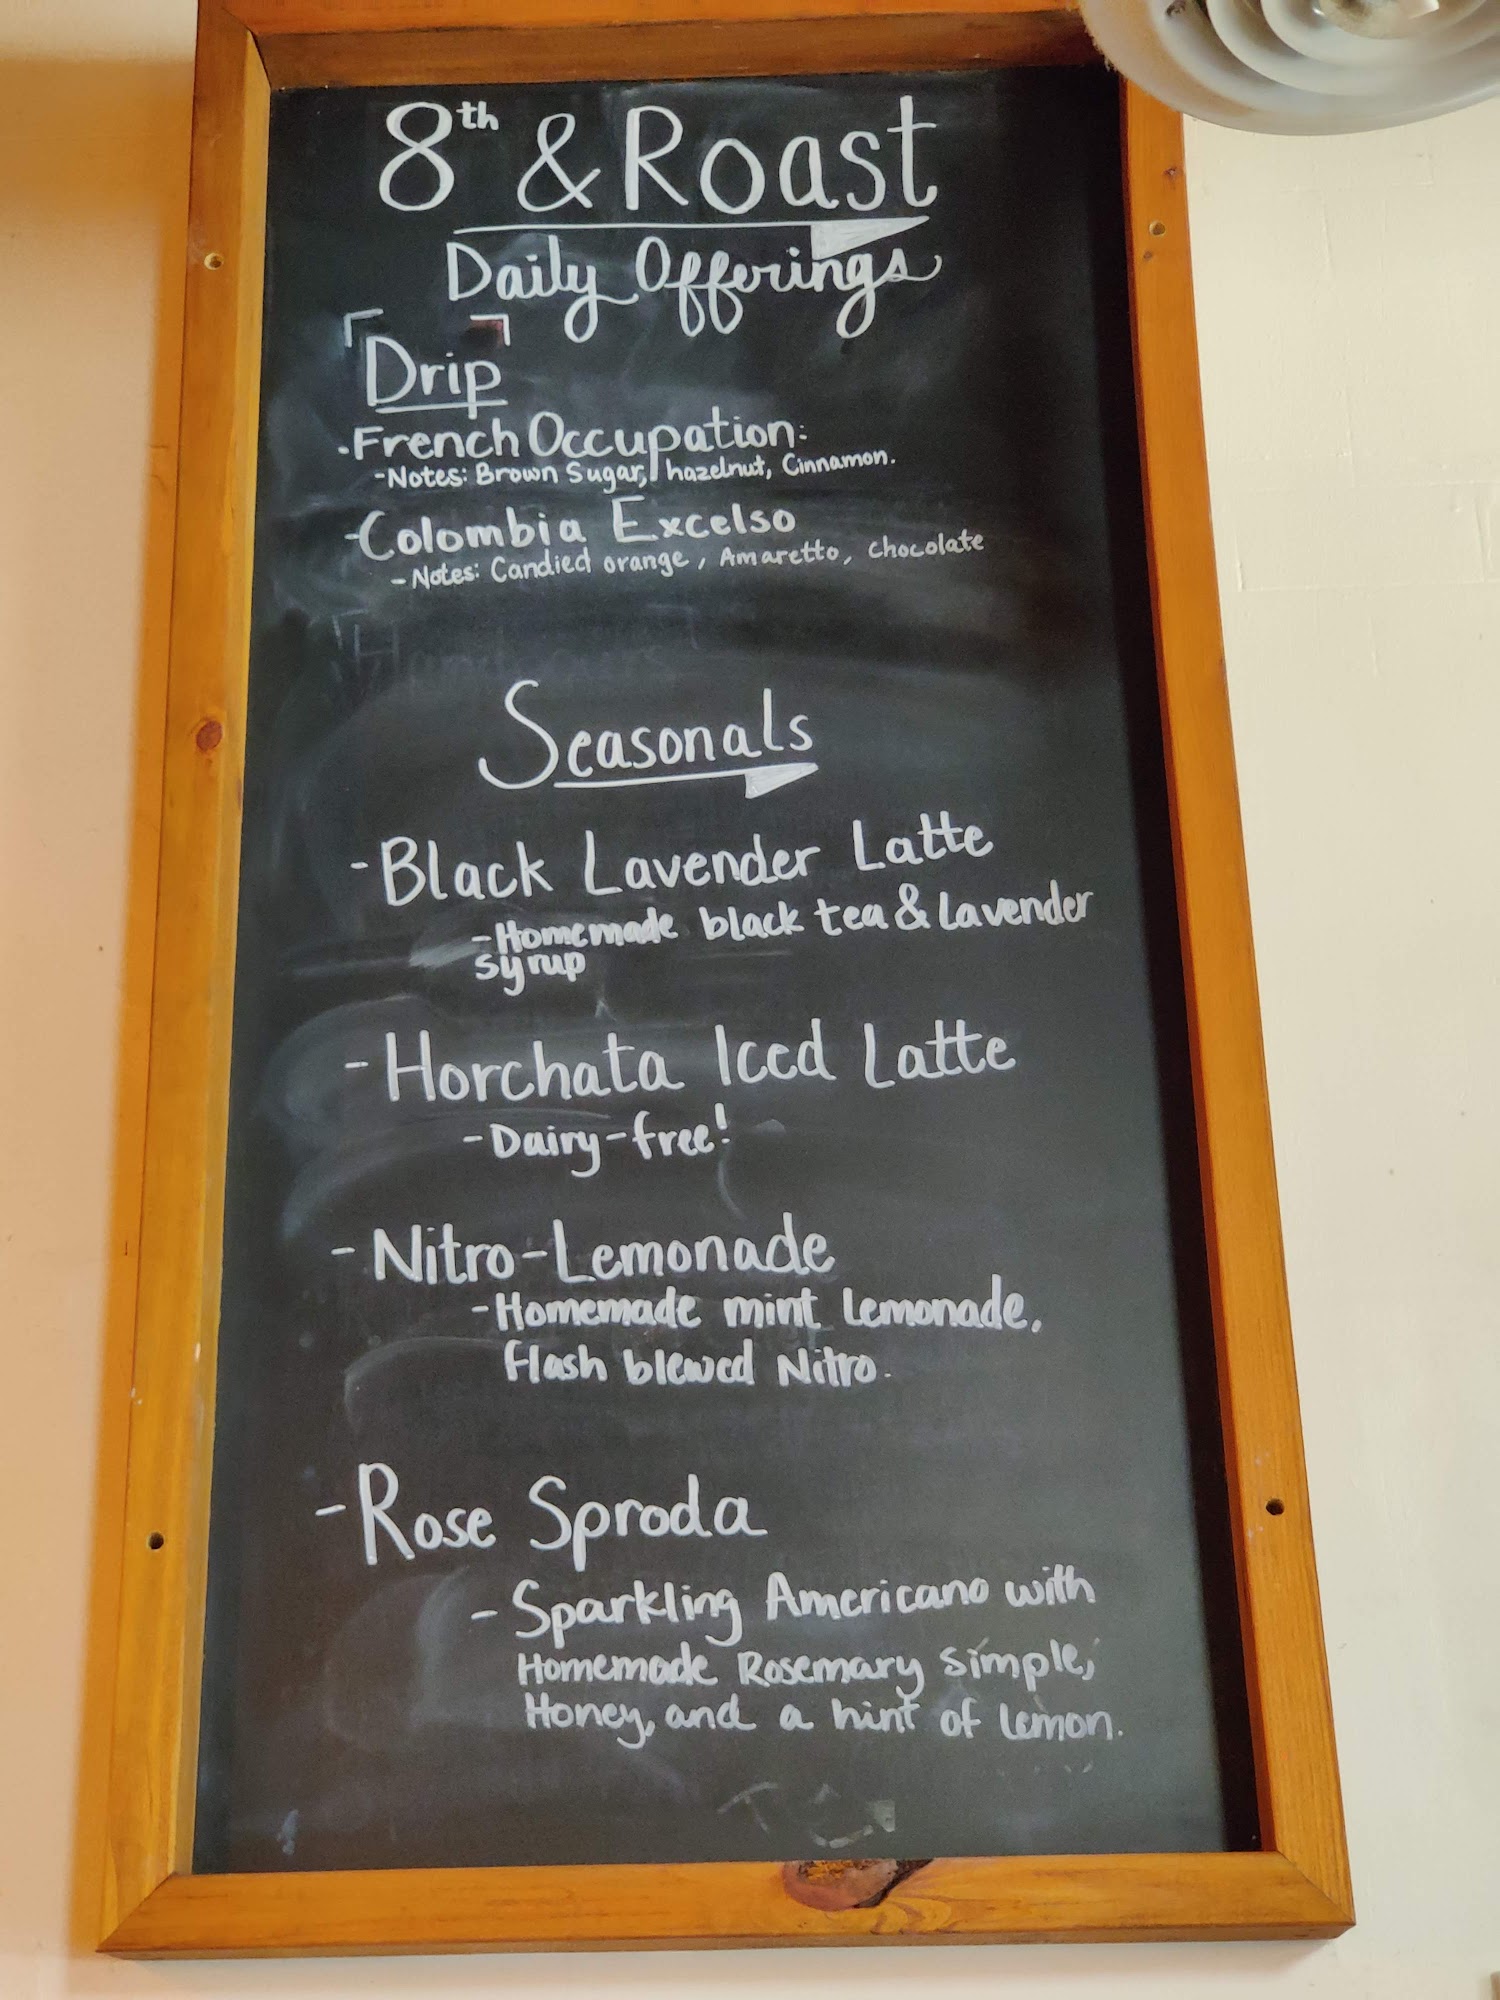 8th & Roast
Daily Offerings
Drip
·French Occupation:
-Notes: Brown Sugar, hazelnut, Cinnamon.
-Colombia Excelso
-Notes: Candied orange, Amaretto, Chocolate
Seasonals
-Black Lavender Latte
-Homemade black tea & Lavender
syrup
-Horchata Iced Latte
-Dairy-free!
-Nitro-Lemonade
-Homemade mint lemonade,
flash blewed Nitro.
-Rose Sproda
-Sparkling Americano with
Homemade Rosemary simple,
Honey, and a hint of lemon.